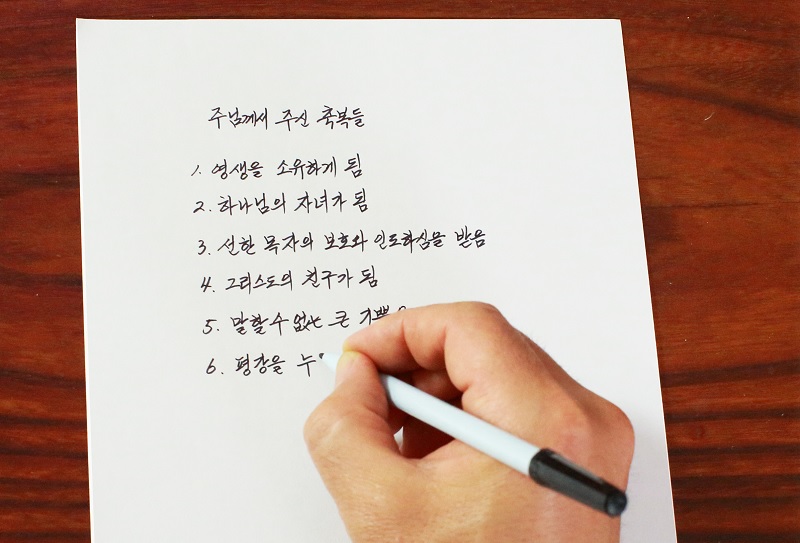 주님께서 주신 축복들
1. 영생을 소유하게 됨
2. 하나님의 자녀가 됨
3. 선한 목자의 보호와 인도하심을 받음
4. 그리스도의 친구가 됨
5. 말할 수 없는 큰 기쁨
6. 평강을 누